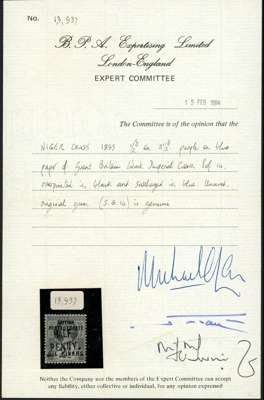 No. 13,937
B. P. A. Expertising Limited
London-England
EXPERT COMMITTEE
15 FEB 1984
The Committee is of the opinion that the
NIGER COAST 1893 on 2½d purple on blue
paper of Great Britain
overprinted in black and surcharged in blue unused,
original gum (S.G. ) is genuine
13,937
BRITISH
PROTECTORATE
HALF
PENNY.
OIL RIVERS.
Neither the Company nor the members of the Expert Committee can accept
any liability, either collective or individual, for any opinion expressed